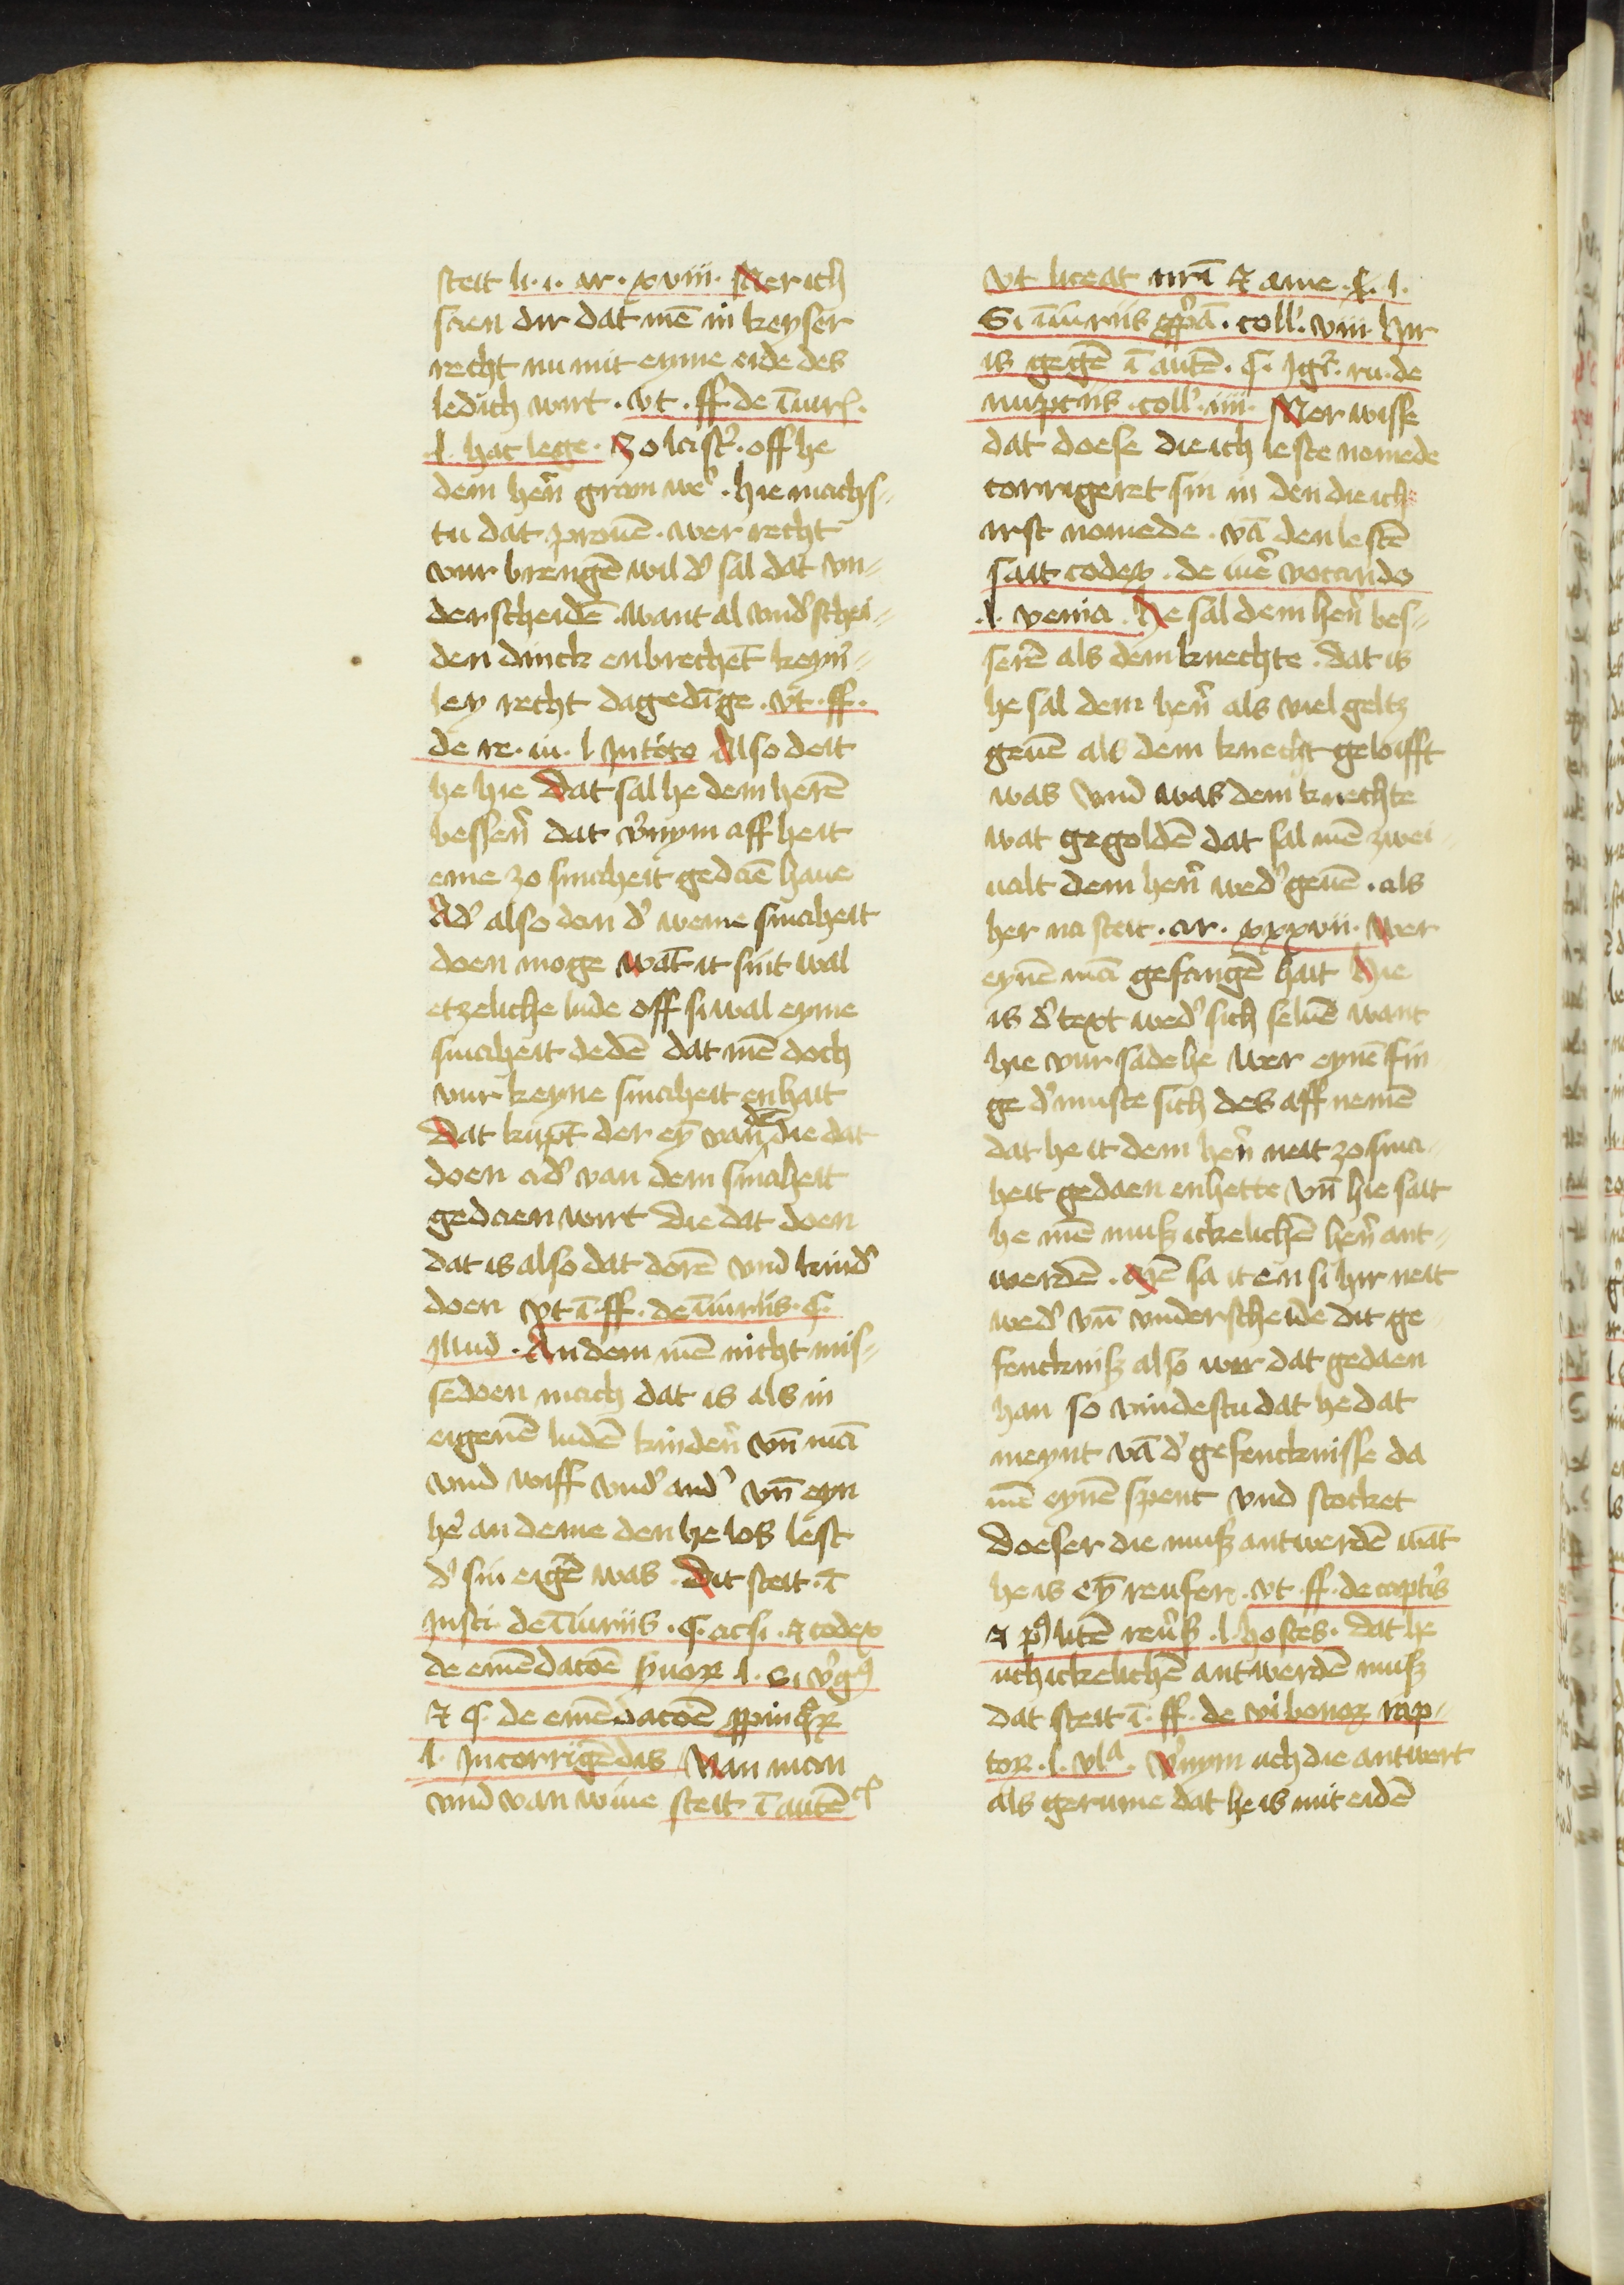 steit li. i. ar. xviii. Mer ich
saen dir dat mē in keyser
recht nu mit eyme eide des
ledich wirt. vt. ff. de iniur.
l. hac lege. Zo laist. off he
dem hern̄ gram we͛. hie machs-
tu dat prouē. wer recht
vur brengē wil d͛ sal dat vn-
derscheidē. want al vnd͛schei-
den dinck enbrechet keyn͛-
ley recht dagedīge. vt. ff.
de re. iu. l In toto Also deit
he hie Dat sal he dem herē
bessern̄ dat v͛nym aff heit
eme zo smaheit gedaē haue
Ad͛ also dan d͛ weme smaheit
doen moge wāt it sint wal
etzeliche lude off si wal eyme
smaheit dedē dat mē doch
vur keyne smaheit enhait
Dat kūpt der eȳ van den die dat
doen ad͛ van dem smaheit
gedaen wirt die dat doen
dat is also dat dorē vnd kind͛
doen vt ī. ff. de īiuriis. §.
illud. An dem mē nicht mis-
sedoen mach dat is als in
eigenē ludē kindern̄ vn̄ mā
vnd wiff vnd͛ and͛ vn̄ eyn
he͛ an deme den he los lest
d͛ sin eigē was. Dit steit. ī
Insti. de īiuriis. §. ac si. et codex
de emēdacōe s͛uor. l. Si v͛gꝰ
et §. de emēdacōe ꝓpinqor
l. In corrigēdis Van man
vnd van wiue steit ī autē
vt liceat mrī et auie. §. l.
Si iniuriis ꝓp͛ā. coll. viii hir
is gegē ī autē. §. Igr͛. ru. de
nuptiis. coll. iiii. Mer wisse
dat doese die ich leste nomede
corrigeret sin in den die ich
irst nomede. vā den lestē
sait codex. de iure vocando
l. venia. He sal dem hern̄ bes-
serē als dem knechte. dat is
he sal dem hern̄ als viel geltz
geuē als dem knecht geloifft
was vnd was dem knechte
wat gegoldē dat sal mē zwei
ualt dem hern̄ wed͛ geuē. als
her na steit. ar. xxxvii. Wer
eynē mā gefangē hait Hie
is d͛ text wed͛ sich seluē want
hie vur sade he Wer eynē fin
ge d͛ muste sich des aff nemē
dat he it dem hern̄ neit zo sma-
heit gedaen enhette vn̄ hie sait
he mē muß ickelichē hern̄ ant-
werdē. Mē sa it en si hir neit
wed͛ vn̄ vnderscheide dit ge-
fenckniß also wer dat gedaen
han so vindestu dat he dat
meynt vā d͛ gefencknisse da
mē eynē spent vnd stocket
doeser die muß antwerdē wāt
he is eȳ reufer. vt. ff. de captis
et pꝰ litē reuͬß. l. hostes. dat he
ichickelichē antwerdē muß
dat steit ī. ff. de vi bonor rap-
tor. l. vla. V͛nym uch die antwert
als gerume dat he is mit eidē